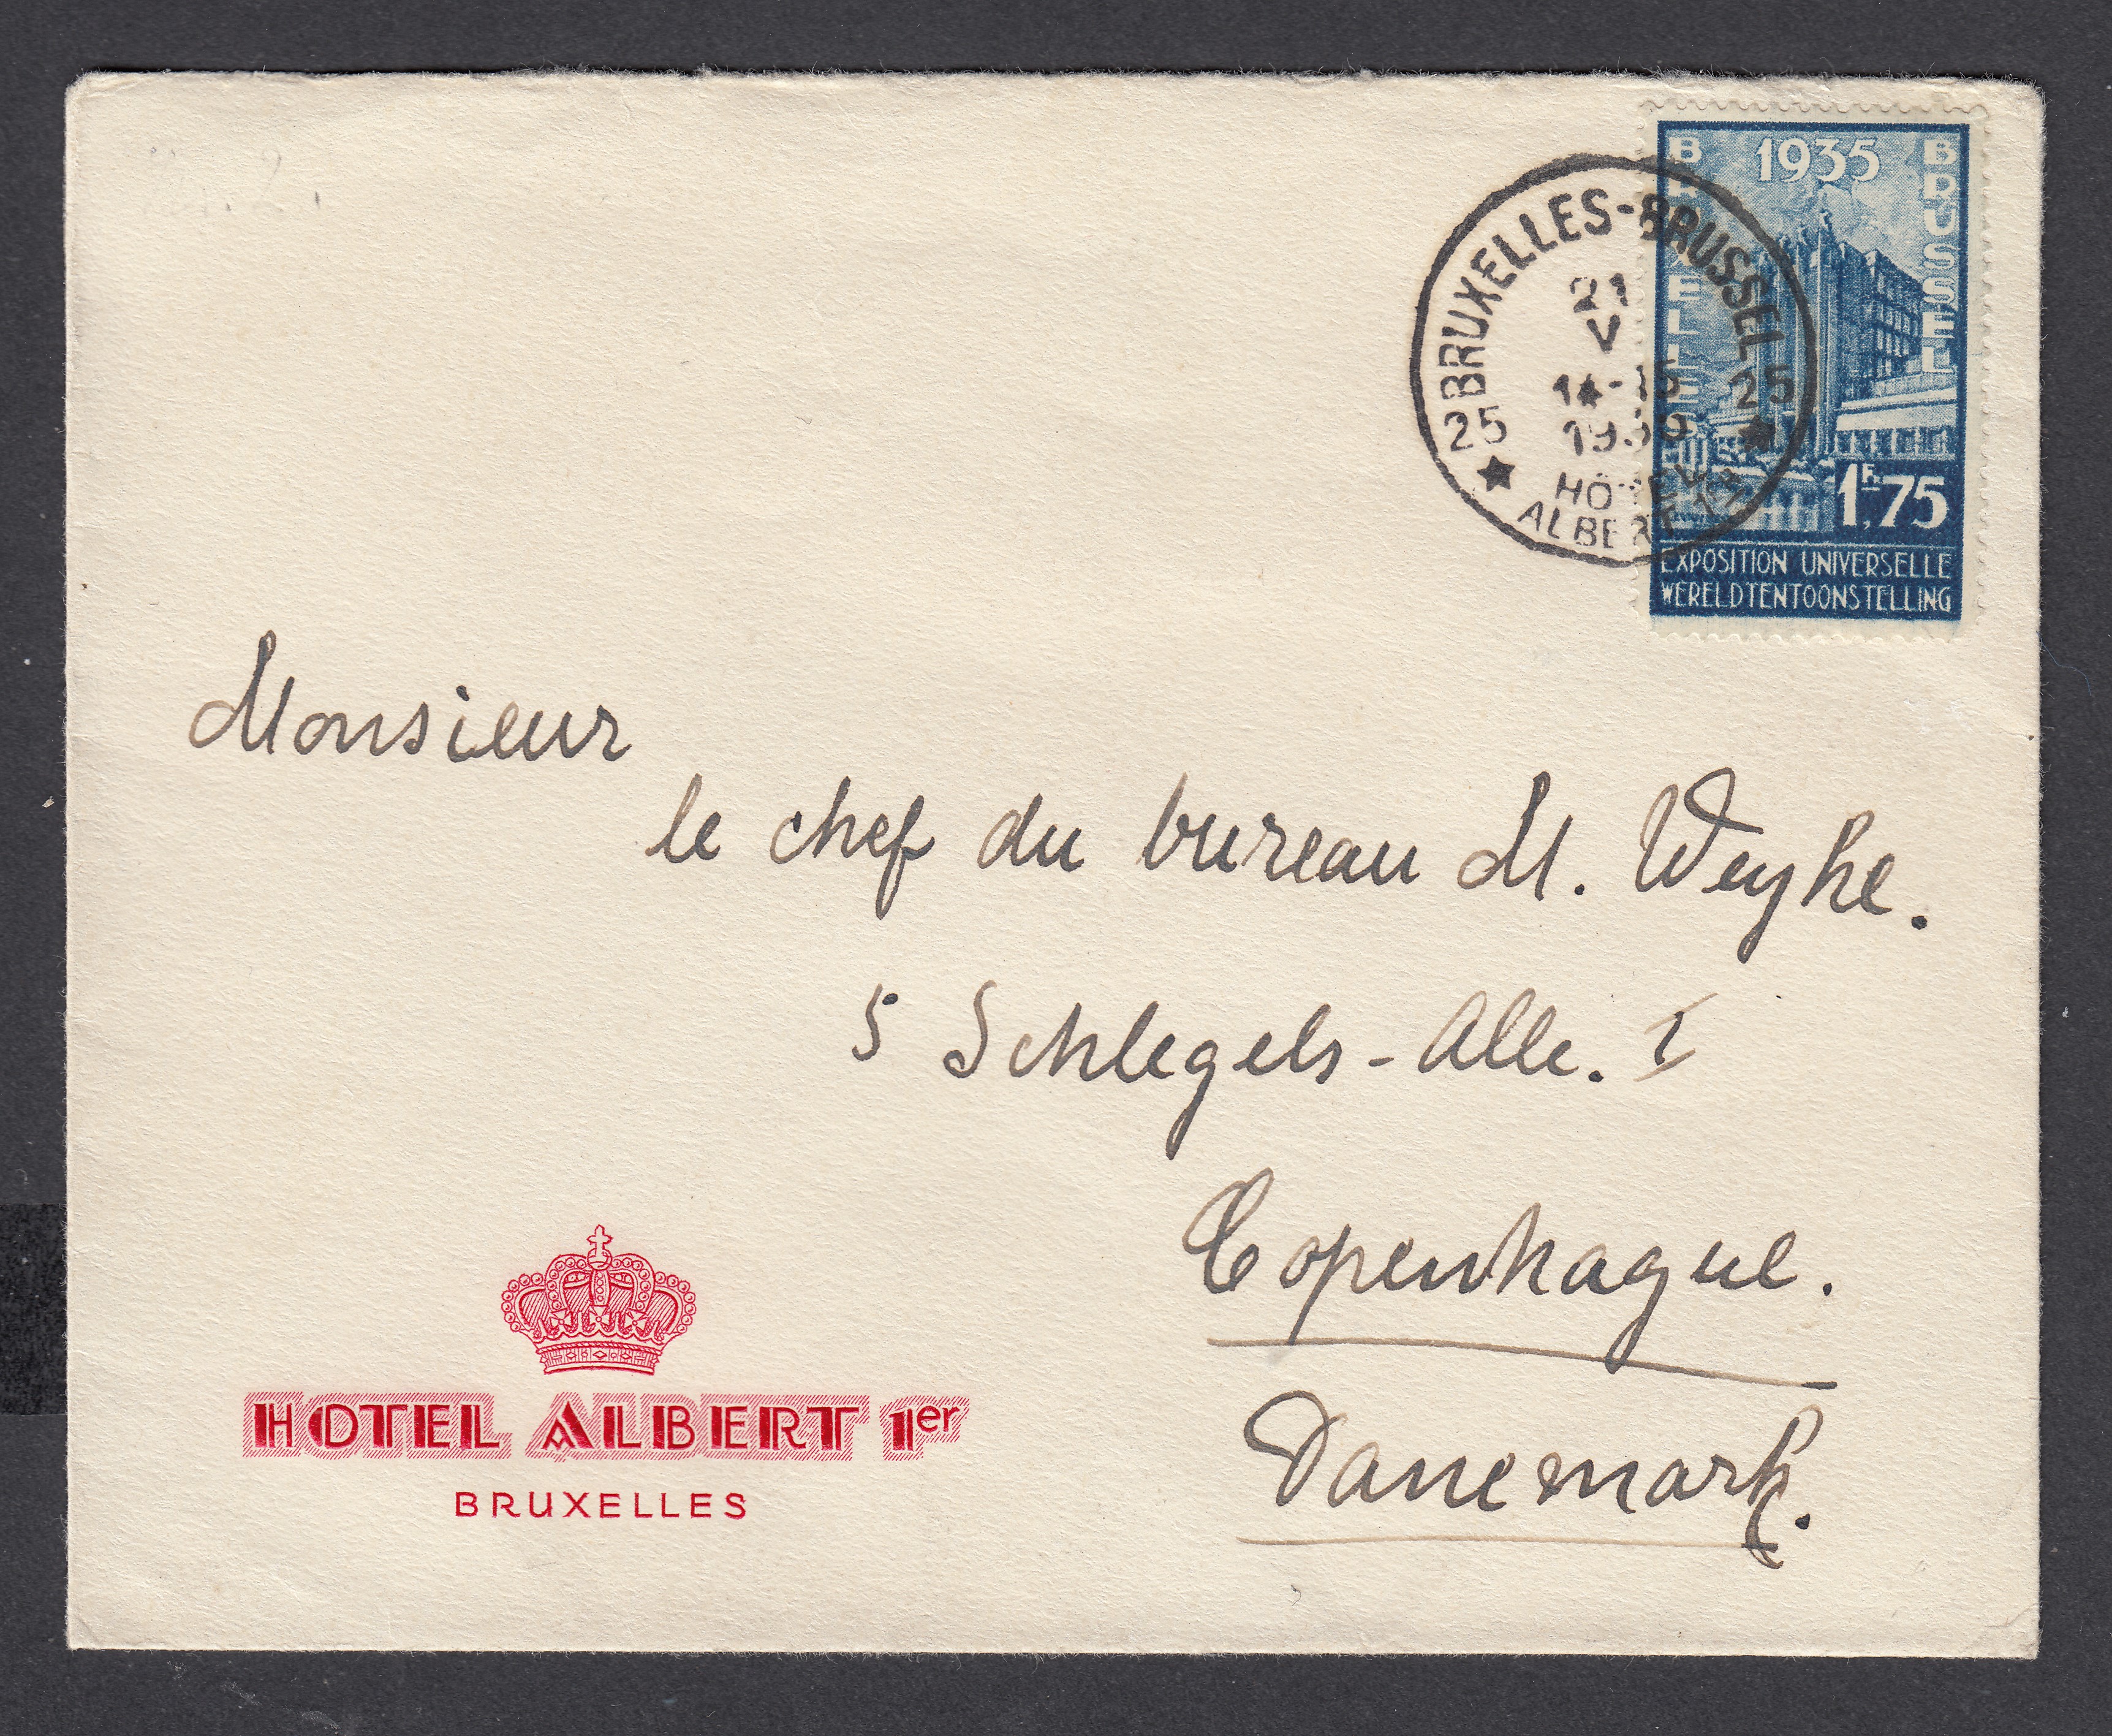 1935
BRUXELLES
BRUSSEL
1Fr.75
EXPOSITION UNIVERSELLE
WERELDTENTOONSTELLING
BRUXELLES-BRUSSEL
21
V
25 25
HOTEL
ALBERT
Monsieur
le chef du bureau M. Weyhe.
5 Schlegels-Alle. I
Copenhague.
Danemark.
HOTEL ALBERT 1er
BRUXELLES